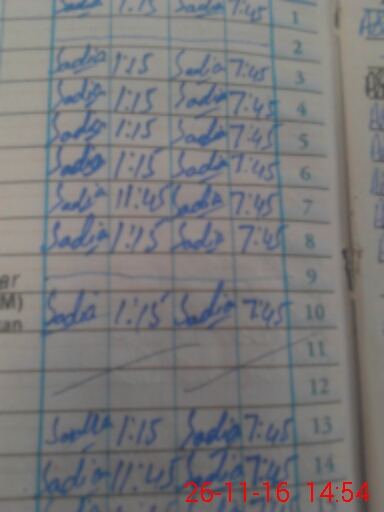 Sadia 1:15 Sadia 7:45 1
2
Sadia 1:15 Sadia 7:45 3
Sadia 1:15 Sadia 7:45 4
Sadia 1:15 Sadia 7:45 5
Sadia 1:15 Sadia 7:45 6
Sadia 11:45 Sadia 7:45 7
Sadia 1:15 Sadia 7:45 8
9
Sadia 1:15 Sadia 7:45 10
11
12
Sadia 1:15 Sadia 7:45 13
Sadia 11:45 Sadia 7:45 14
26-11-16 14:54